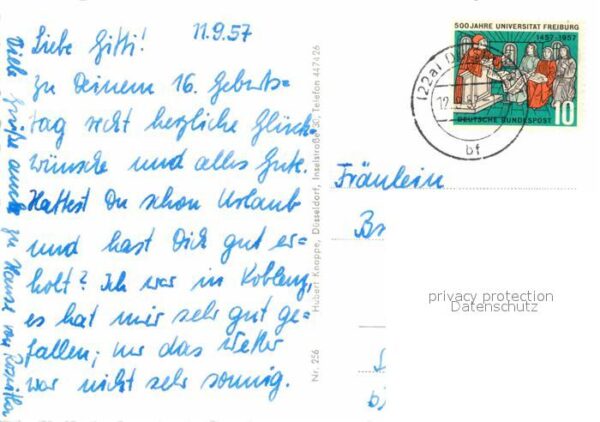 11.9.57
Liebe Gitti!
Zu Deinem 16. Geburts=
tag recht herzliche Glück=
wünsche und alles Gute.
Hattest Du schon Urlaub
und hast Dich gut er=
holt? Ich war in Koblenz,
es hat mir sehr gut ge=
fallen; nur das Wetter
war nicht sehr sonnig.
Viele Grüße auch zu Hause von Roswitha
Nr. 256 Hubert Knappe, Düsseldorf, Inselstraße 30, Telefon 447426
500 JAHRE UNIVERSITÄT FREIBURG
1457-1957
10
DEUTSCHE BUNDESPOST
(22a)
bf
Fräulein
privacy protection
Datenschutz